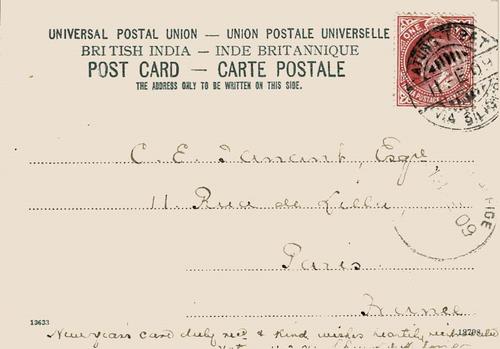 UNIVERSAL POSTAL UNION — UNION POSTALE UNIVERSELLE
BRITISH INDIA — INDE BRITANNIQUE
POST CARD — CARTE POSTALE
THE ADDRESS ONLY TO BE WRITTEN ON THIS SIDE.
ONE
VIA
09
C. E. Tanant, Esqre
11. Rue de Lille,
09
Paris
France
13633
New year's card duly recd & kind wishes heartily